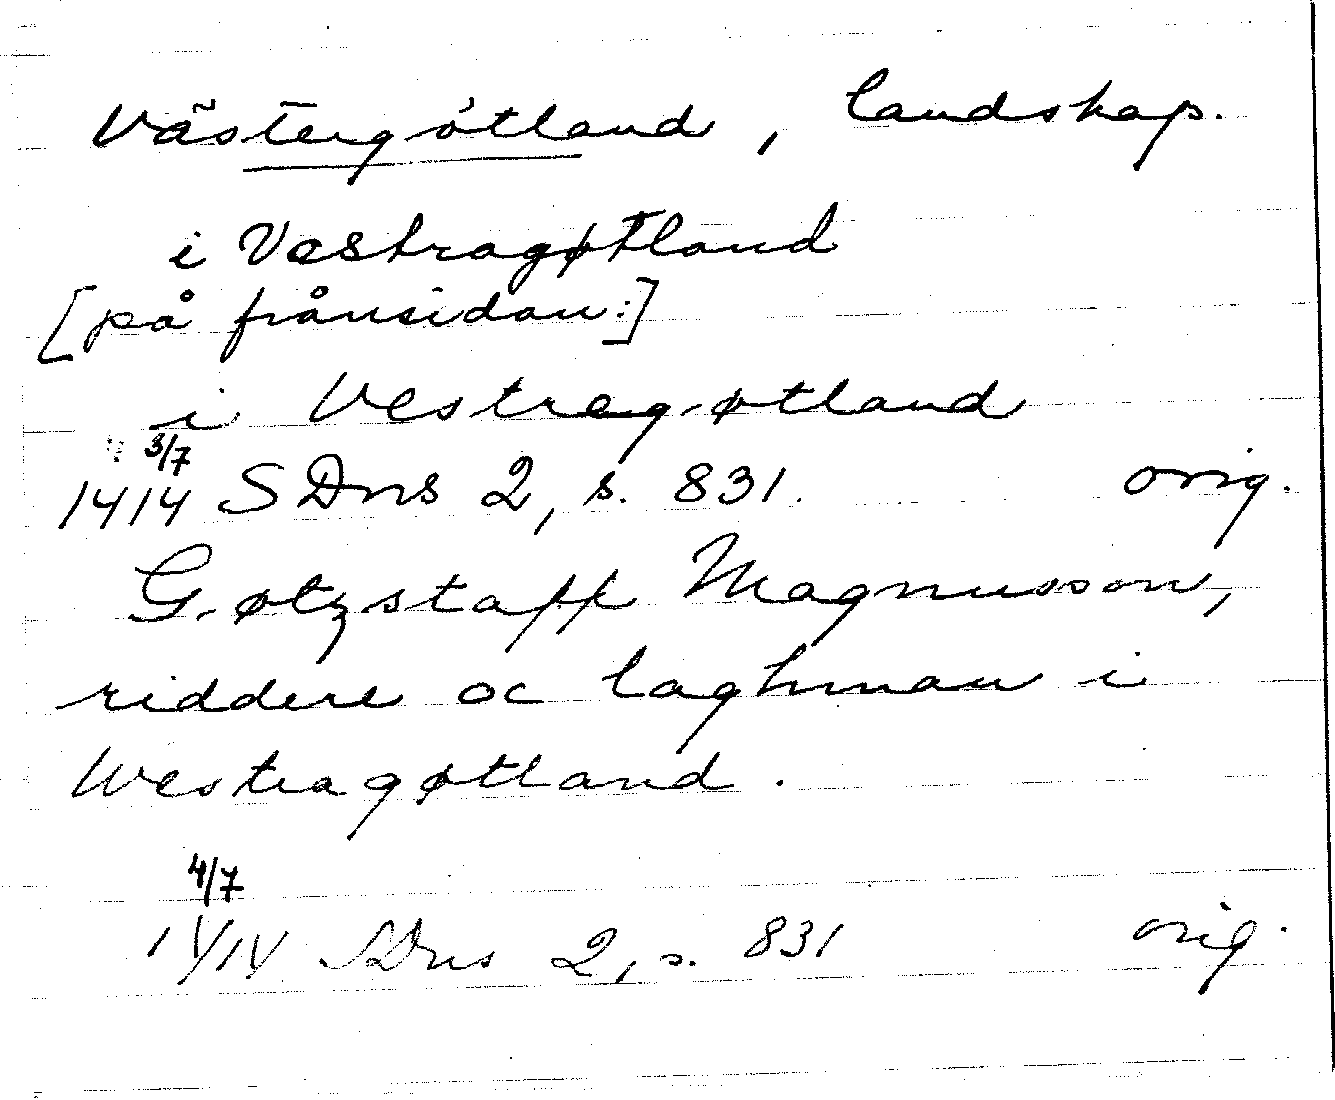 Västergötland, landskap.
i Vestragøtland
[på frånsidan:]
i Vestragøtland
3/7
1414 SDns 2, s. 831. orig.
Gøtzstaff Magnusson,
riddere oc laghman i
Westragøtland.
4/7
1414 SDns 2, s. 831 orig.